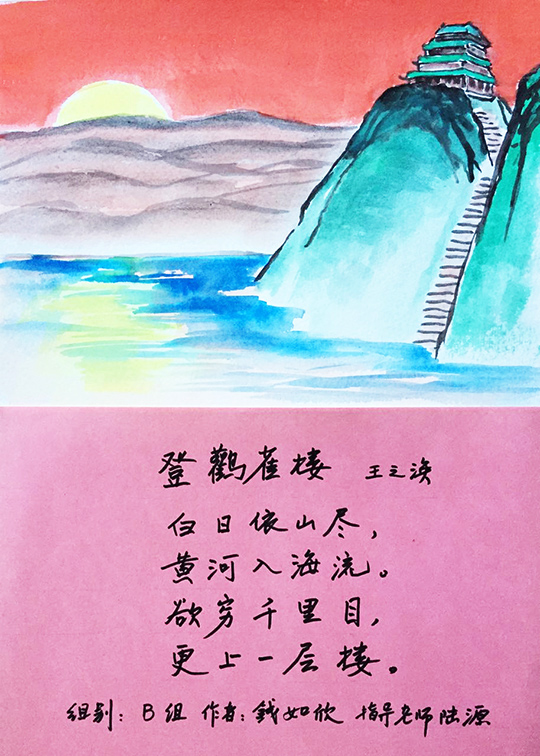 登鸛雀楼 王之涣
白日依山尽，
黄河入海流。
欲穷千里目，
更上一层楼。
组别：B组 作者：钱如欣 指导老师陆源